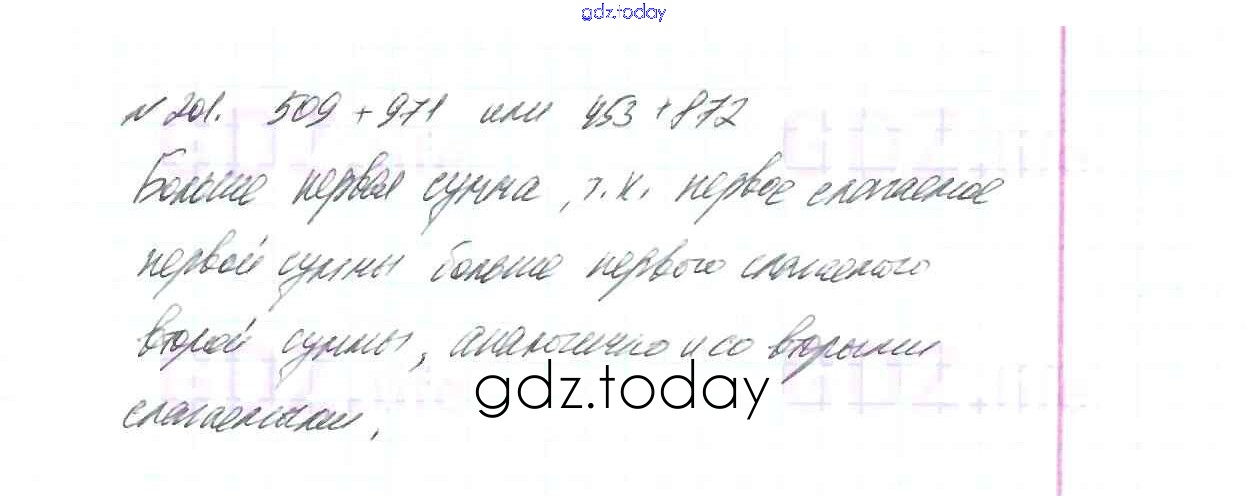 gdz.today
№ 201. 509 + 971 или 453 + 872
Больше первая сумма, т.к. первое слагаемое
первой суммы больше первого слагаемого
второй суммы, аналогично и со вторыми
gdz.today
слагаемыми.